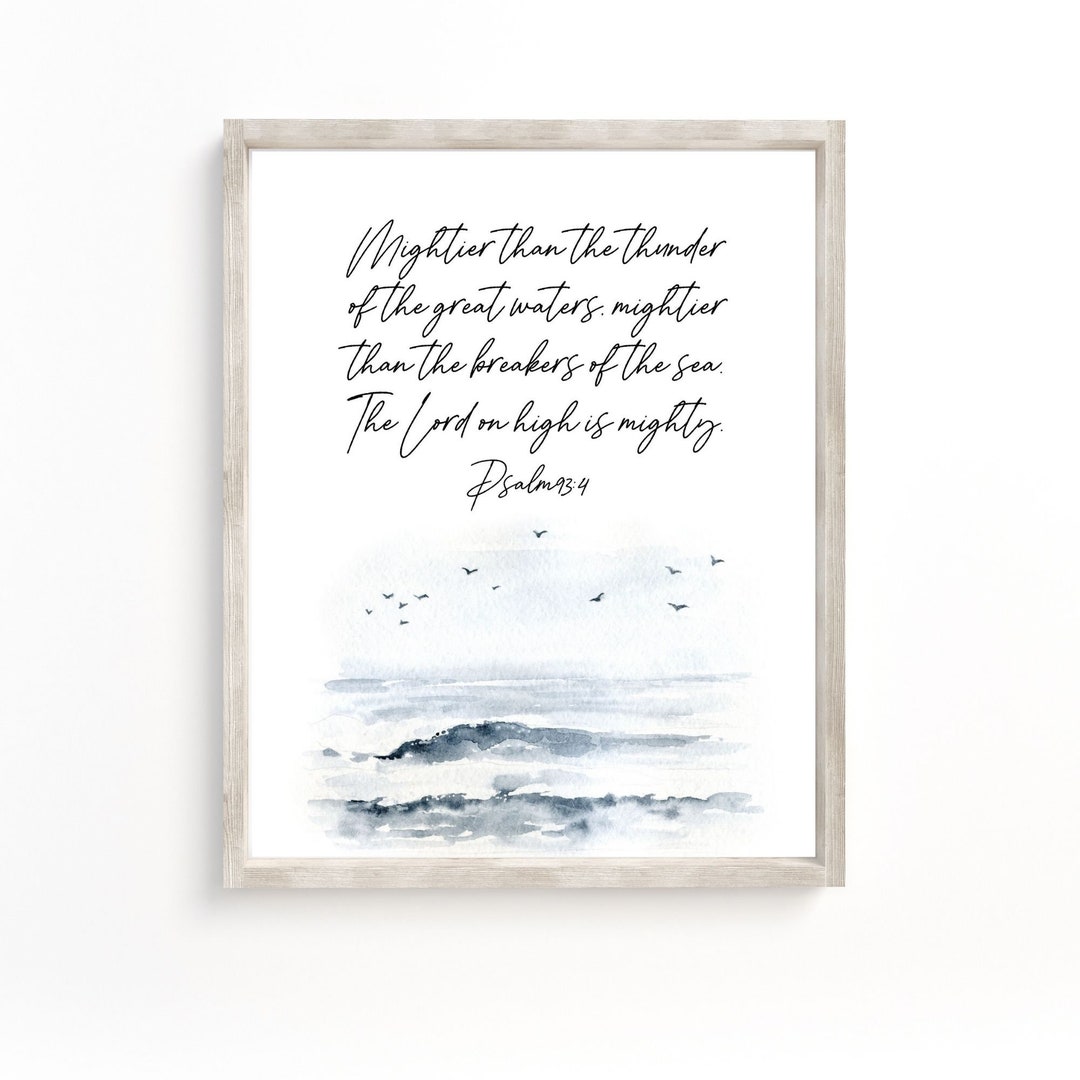 Mightier than the thunder
of the great waters, mightier
than the breakers of the sea.
The Lord on high is mighty.
Psalm93:4